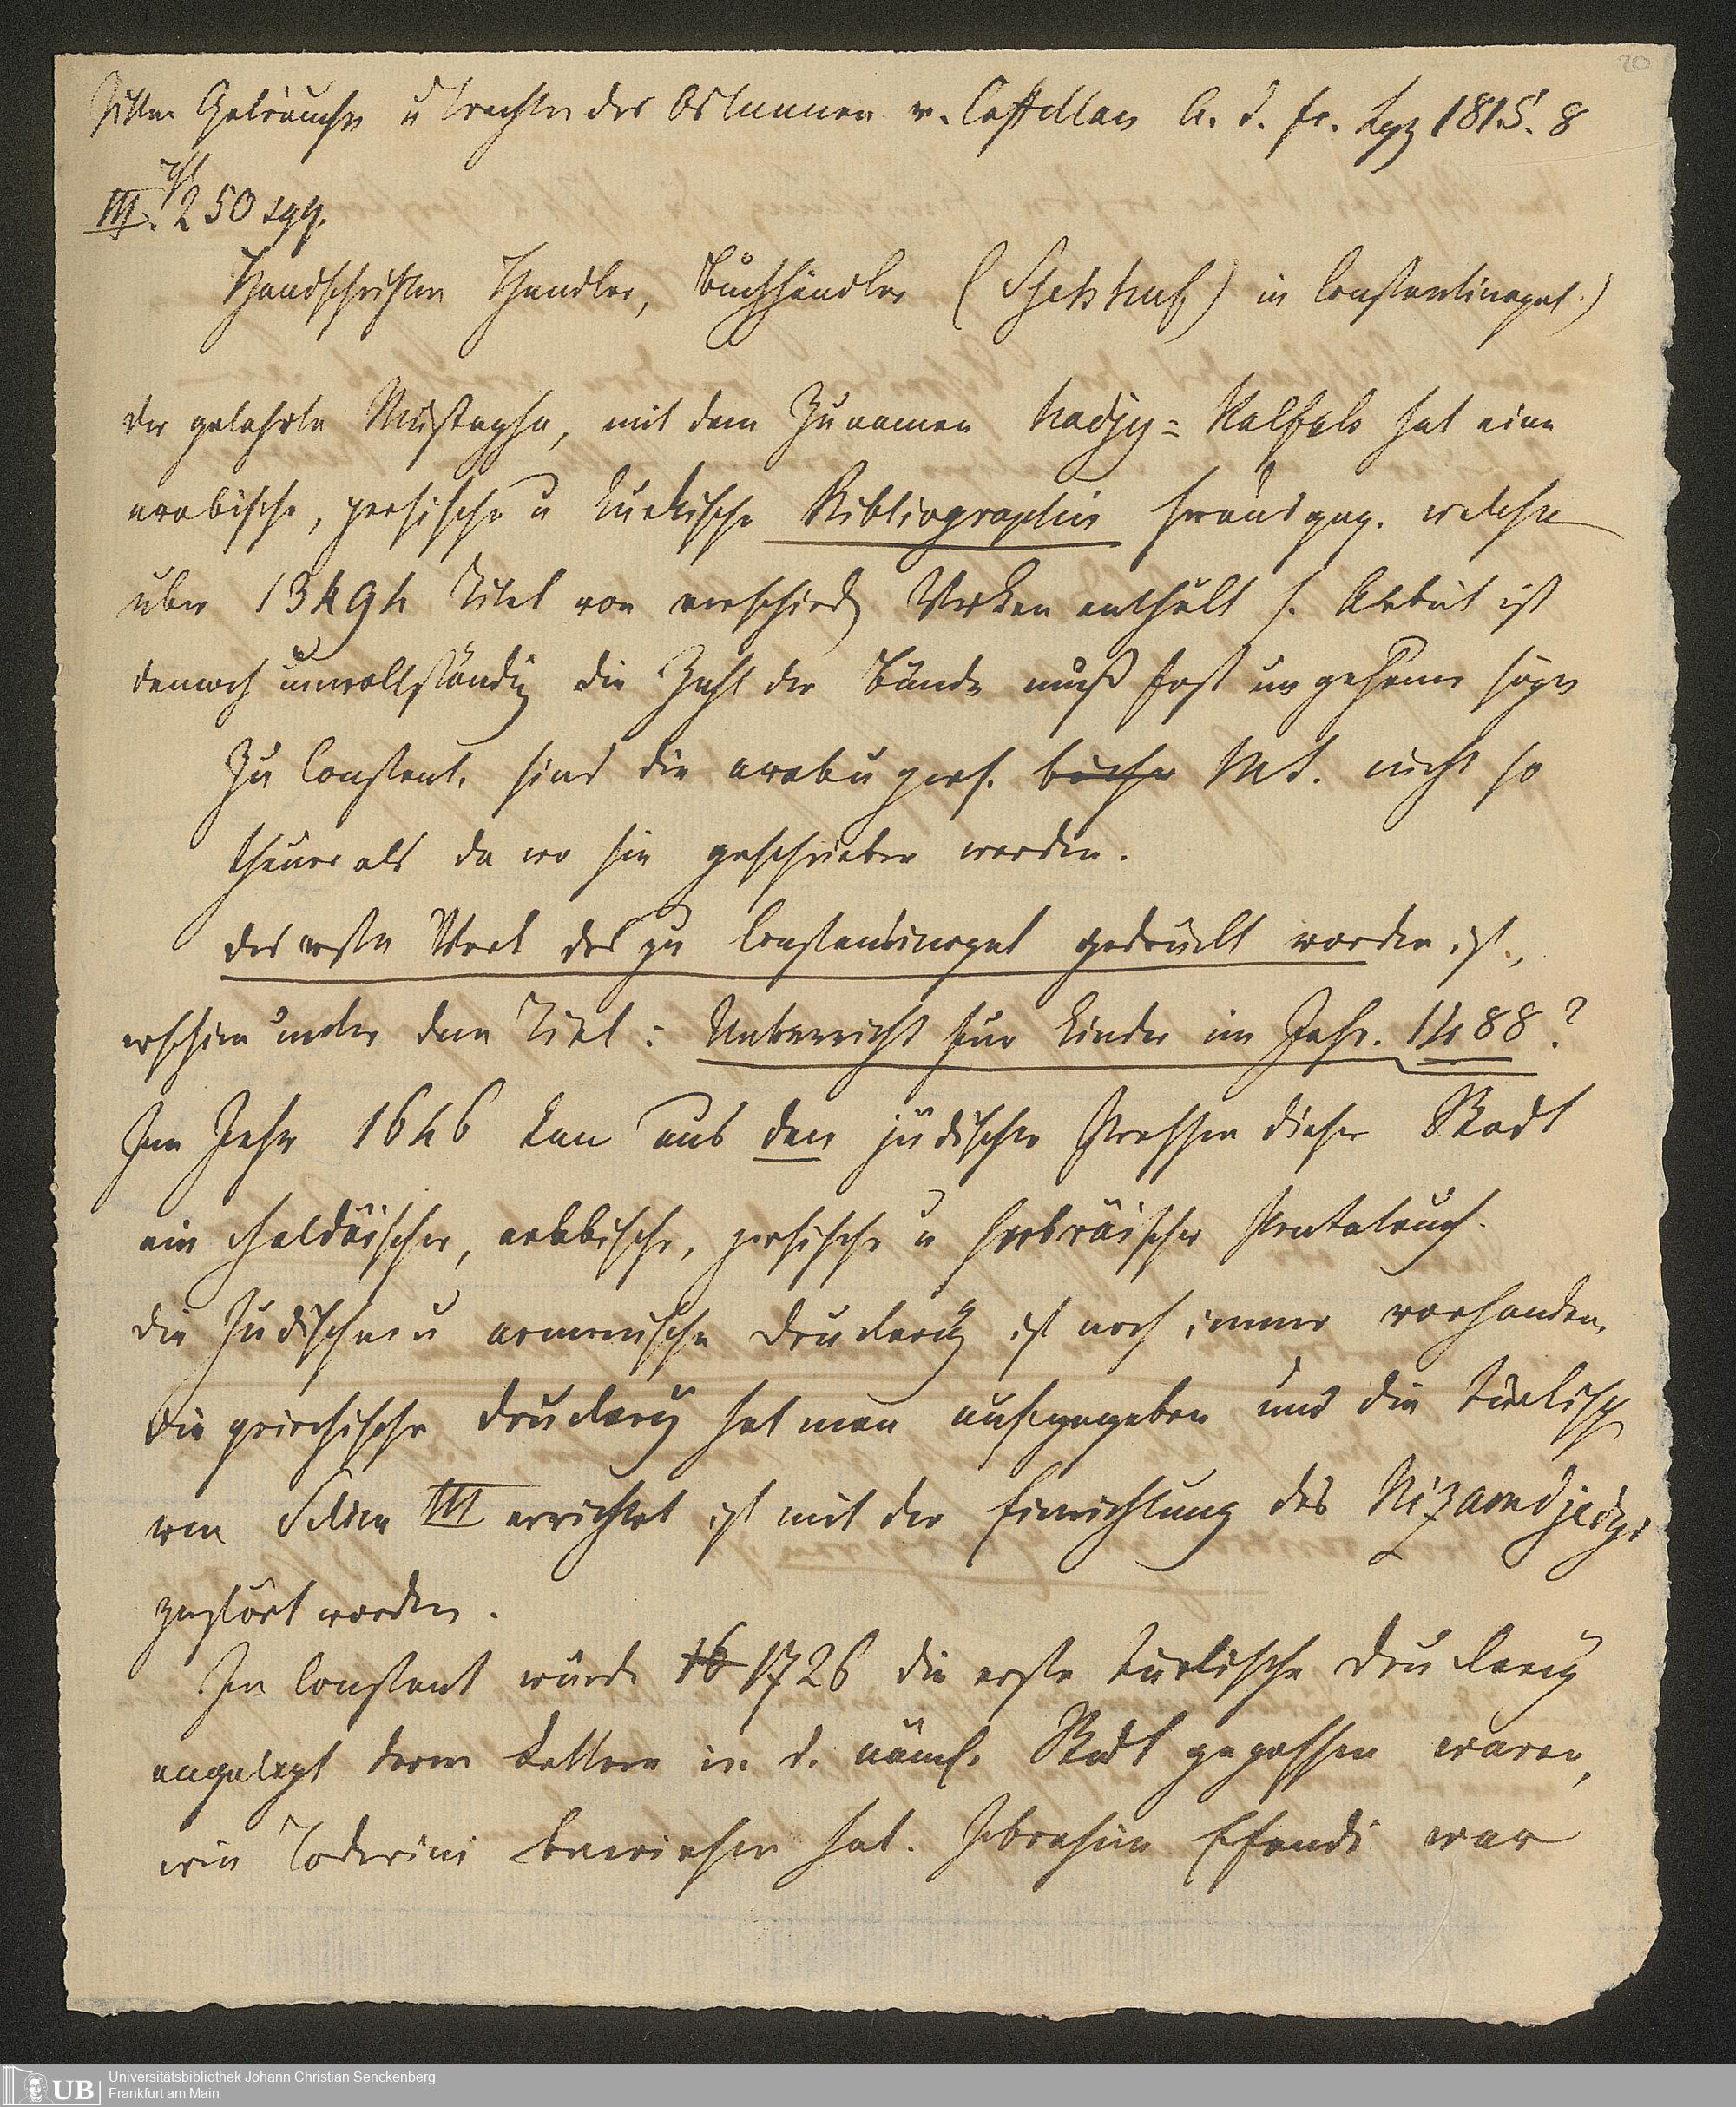 20
Sitten Gebräuche u Trachten der Osmanen v. Castellan A. d. fr. Lpz 1815. 8
III. 250 sqq.
Handschriften Händler, Buchhändler ( ) in Constantinopel.)
der gelehrte Mustapha, mit dem Zunamen hadjy= Kalfah hat eine
arabische, persische u turkische Bibliographie herausgeg. welche
uber 13494 Titel von verschied Werken enthält s. Arbeit ist
dennoch unvollständig die Zahl der Bände muß fast ungeheuer seyn
Zu Constant. sind die arab u pers. bücher Mt. nicht so
theuer als da wo sie geschrieben werden.
das erste Werk das zu Constantinopel gedruckt worden ist,
erschien unter dem Titel: Unterricht fur Kinder im Jahr. 1488?
Im Jahr 1646 kam aus den jüdischen Pressen dieser Stadt
ein chaldäischer, arabische, persische u hebräischer Pentateuch.
die Judische u armenische Druckerey ist noch immer vorhanden,
die griechische Druckerey hat man aufgegeben und die türkisch
von Selim III errichtet ist mit der Einrichtung des
zerstört worden.
In Constant wurde 16 1726 die erste turkische Druckerey
angelegt deren Lettern in d. näml. Stadt gegossen waren,
wie Toderini bewiesen hat. Ibrahim Efendi war
UB
Universitätsbibliothek Johann Christian Senckenberg
Frankfurt am Main